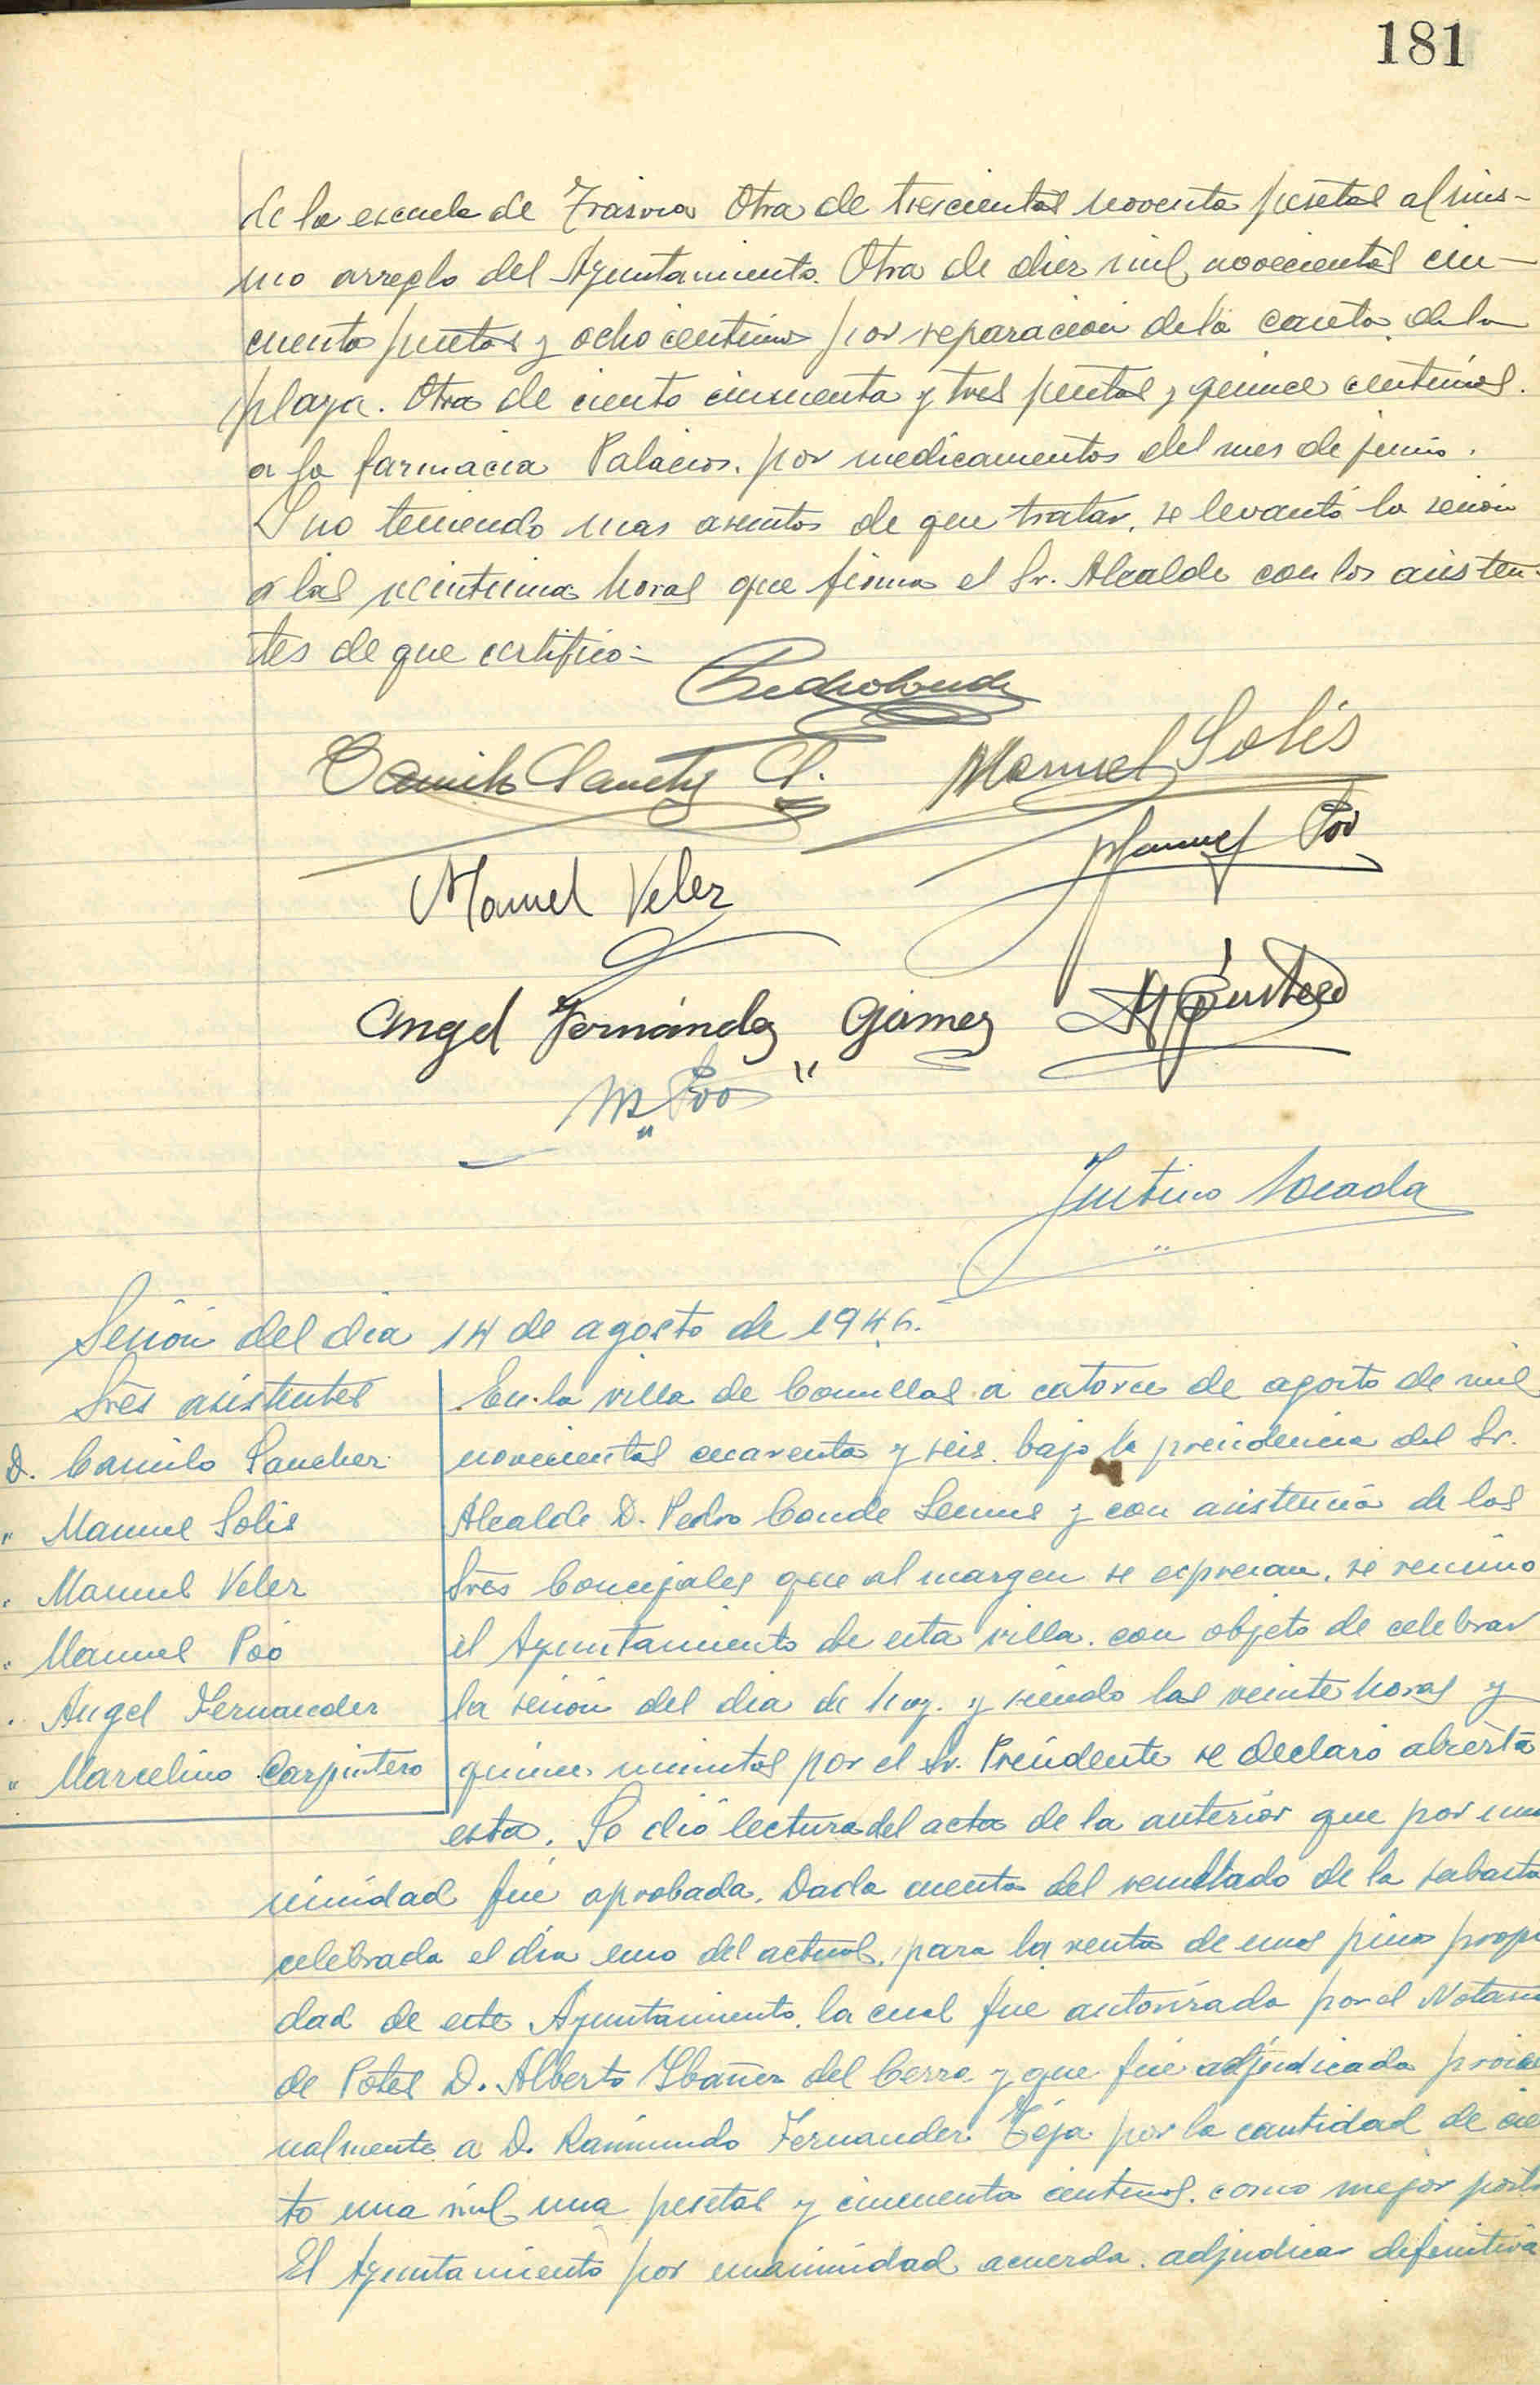 181
de la escuela de Trasvia Otra de trescientas noventa pesetas al mis-
mo arreglo del Ayuntamiento. Otra de diez mil novecientas cin-
cuenta pesetas y ocho centimos por reparación de la caseta de la
plaza. Otra de ciento cincuenta y tres pesetas y quince centimos.
a la farmacia Palacios. por medicamentos del mes de junio.
Y no teniendo mas asuntos de que tratar, se levantó la sesión
a las veintiuna horas que firma el Sr. Alcalde con los asisten-
tes de que certifico=
Pedro Conde
Camilo Sanchez
Manuel Solis
Manuel Poo
Manuel Velez
Angel Fernández Gómez
M Poo
Justino
Sesión del dia 14 de agosto de 1946.
Sres asistentes
D. Camilo Sanchez
" Manuel Solis
" Manuel Velez
" Manuel Poó
" Angel Fernandez
" Marcelino Carpintero
En la villa de Comillas a catorce de agosto de mil
novecientos cuarenta y seis. bajo la presidencia del Sr.
Alcalde D. Pedro Conde Lemus y con asistencia de los
Sres Concejales que al margen se expresan, se reunio
el Ayuntamiento de esta villa. con objeto de celebrar
la sesión del dia de hoy. y siendo las veinte horas y
quince minutos por el Sr. Presidente se declaró abierta
esta. Se dió lectura del acta de la anterior que por una
nimidad fue aprobada. Dada cuenta del resultado de la subasta
celebrada el dia uno del actual. para la venta de unos pinos propie
dad de este Ayuntamiento. la cual fue autorizada por el Notario
de Potes D. Alberto Ybañez del Cerro y que fué adjudicada provisio
nalmente a D. Raimundo Fernandez Teja por la cantidad de cien
to una mil una pesetas y cincuenta centimos. como mejor postor
El Ayuntamiento por unanimidad acuerda. adjudicar definitiva